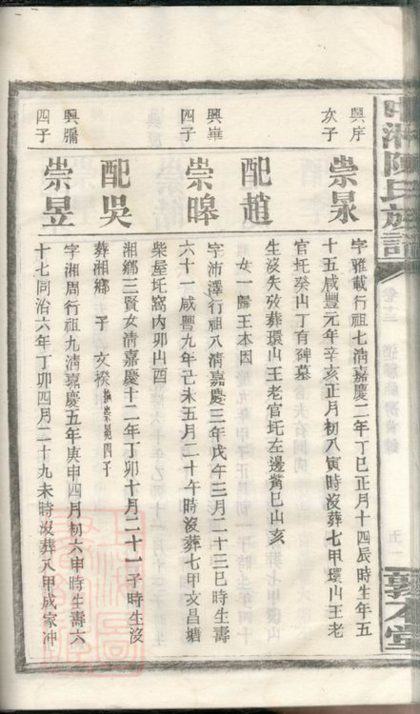 中湘陳氏族譜
卷十三
五一
敦本堂
興序
次子
崇杲
字雅載行祖七清嘉慶二年丁巳正月十四辰時生年五
十五咸豐元年辛亥正月初八寅時沒葬七甲環山王老
官圫癸山丁有碑墓
配趙
生沒失攷葬環山王老官圫左邊觜巳山亥
女一陽王本因
興畢
四子
崇暤
字沛澤行祖八清嘉慶三年戊午三月二十三巳時生壽
六十一咸豐九年己未五月二十午時沒葬七甲文昌塘
柴屋圫窩內卯山酉
配吳
湘鄉三賢女清嘉慶十二年丁卯十月二十一子時生沒
葬湘鄉 子 文揆
興彌
四子
崇昱
字湘周行祖九清嘉慶五年庚申四月初六申時生壽六
十七同治六年丁卯四月二十九未時沒葬八甲成家冲